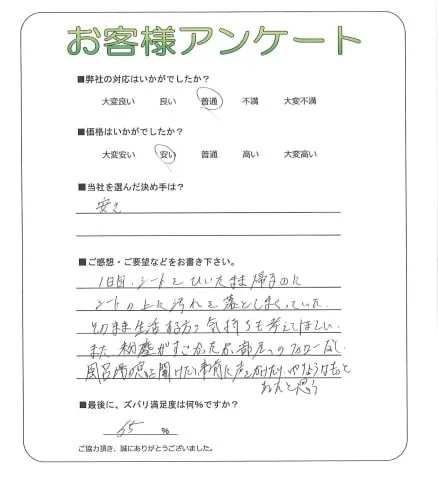 お客様アンケート
■弊社の対応はいかがでしたか？
大変良い 良い 普通 不満 大変不満
■価格はいかがでしたか？
大変安い 安い 普通 高い 大変高い
■当社を選んだ決め手は？
安さ
■ご感想・ご要望などをお書き下さい。
1日目、シートをひいたまま帰るのに
シートの上に汚れを落としまくっていた。
そのまま生活する方の気持ちも考えてほしい。
また粉塵がすごかったが、部屋へのフォローなし。
風呂場の窓を開けたり、事前に声をかけたり、やりようはもっと
あったと思う
■最後に、ズバリ満足度は何％ですか？
65 %
ご協力頂き、誠にありがとうございました。